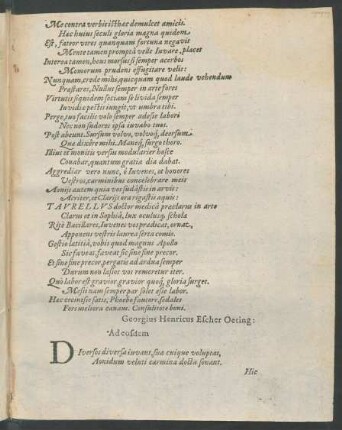 Me contra verbis isthæc demulcet amicis.
Hac huius seculi gloria magna quidem
Est, fateor veros quanquam fortuna negavit
Mente tamen prompta velle Iuvare, placet
Interea tamen, heus morsus si semper acerbos
Momorum prudens effugitare velis:
Nunquam, crede mihi, quicquam quod laude vehendum
Præstares, Nullus semper in arte fores
Virtutis siquidem socians se livida semper
Invidiæ pestis iungit, ut umbra tibi.
Perge, tuo facilis volo semper adesse labori
Nec non sudores ipsa iuvabo tuos.
Post abeunt. Sursum volvo, volvoq́, deorsum
Quæ dixêre mihi. Maneq́, surgo thoro.
Illius et invitis versus modularier hosce
Conabar, quantum gratia dia dabat.
Aggrediar vero nunc, ô Iuvenes, et honores
Vestros, carminibus concelebrare meis
Aonijs autem quia vos sudastis in arvis:
Acriter, et Clarijs ora rigastis aquis:
TAVRELLVS doctor medicâ præclarus in arte
Clarus et in Sophiâ, lux oculusq́ scholæ
Ritè Bacillares, Iuvenes vos prædicat, ornat,
Apponens vestris laurea serta comis.
Gestio lætitiâ, vobis quod magnus Apollo
Sic faveat, faveat sic sine sine precor.
Et sine sine precor, pergatis ad ardua semper
Durum non lasset vos remoretur iter.
Quò labor est gravior, gravior quoq́, gloria surget.
Messis nam semper par solet esse labor.
Hæc cecinisse satis, Phœbo fautore, sodales
Fers meliora canam. Consulitote boni.
Georgius Henricus Escher Oeting:
Ad eosdem
DIversos diversa iuvant, sua cuique voluptas,
Aonidum veluti carmina docta sonant.
Hic